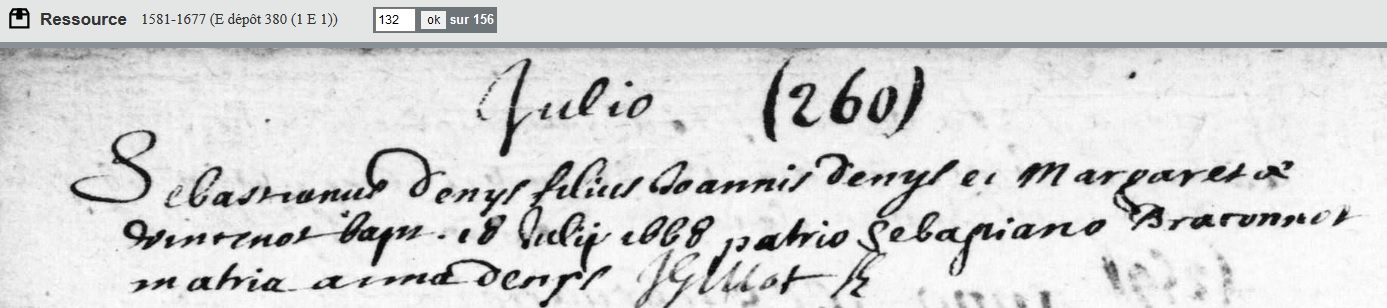 Ressource 1581-1677 (E dépôt 380 (1 E 1)) 132 ok sur 156
Julio (260)
Sebastianus denys filius Joannis denys et Margaretæ
vincenot bapt. 18 Julij 1668 patrio Sebastiano Braconnot
matria anna denys JGillot